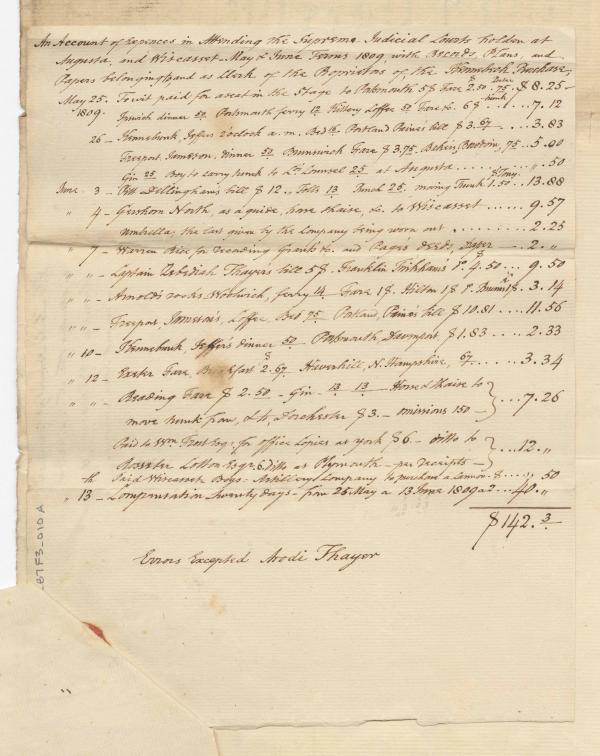 An Account of Expences in Attending the Supreme Judicial Courts holden at
Augusta, and Wiscasset - May & June Terms 1809, with Records, Plans, and
Papers belonging and as Clerk of the Proprietors of the Kennebeck Purchase,
May 25. To wit paid for a seat in the Stage to Portsmouth 5$ Fare $ 2.50 .75 - $ 8.25 -
1809. Ipswich dinner 50 Portsmouth ferry 12 Kittery Coffee 50 Fare &c. 6$ .... 7.12
26 - Kennebunk, Jeffers 2 oclock a.m. Bed Portland Paines bill $ 3.67 .... 3.83
Freeport Jameson, dinner 50 Brunswick Fare $ 3.75. .75 .. 5.00
Gin 25 Boy to carry trunk to Co. Counsel 25 at Augusta ...... " .50
June 3 - Pitt Dillingham's bill $ 12." Tolls 13 Punch 25, moving Trunk 1.50 .. 13.88
" 4 - Gershom North, as a guide, horse chaise, &c. to Wiscasset .... 9.57
umbrella, the last given by the Company being worn out ...... 2.25
" 7 - Warren Rice for recording Grants &c. and Pages Deeds, - 2. "
" " - Captain Zebediah Thayers bill 5$. Franklin 4.50 ... 9.50
" " - Arnold's rocks Woolwich, ferry 14 Fare 1$. Hilton 1$ . 3.14
" " - Freeport, Jameson's, Coffee, Bed 75 Portland, Paines bill $ 10.81 .... 11.56
" 10 - Kennebunk, Jeffers dinner 50 - Portsmouth, Davenport $ 1.83 ..... 2.33
" 12 - Exeter Fare, Breakfast $ 2.67 Haverhill, N. Hampshire, 67 ..... 3.34
" " - Reading Fare $ 2.50 - Gin - 13 13 - Horse & Chaise to
move trunk from, & to, Dorchester $ 3 - omissions 150 - } ... 7.26
Paid to Wm. Frost Esqr. for Office Copies at York $6 - ditto to
Rossiter Cotton Esqr. 6 Ditto at Plymouth - per receipts - } ... 12. "
Paid Wiscasset Boys' Artillery Company to purchase a Cannon $ .... " 50
" 13th - Compensation twenty days - from 25 May a 13 June 1809 a 2 ... 40. "
$ 142. 3 -
Errors Excepted Arodi Thayer
87F3-010A